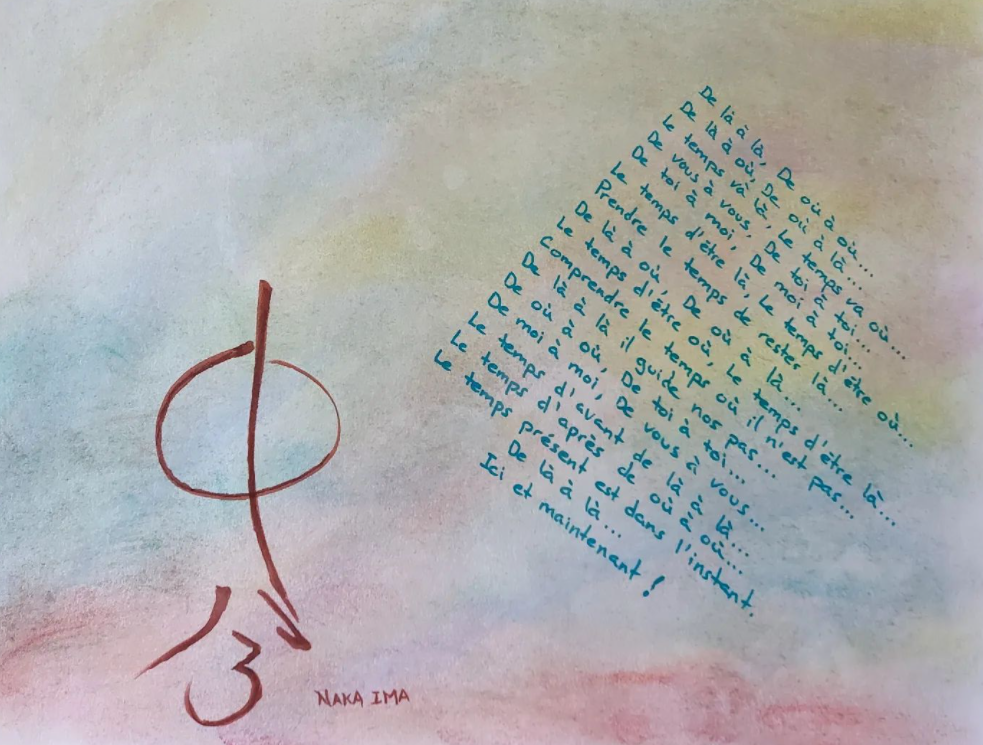 De là à là, De où à où...
De là à où, De où à là...
Le temps và là, Le temps va où...
De vous à vous, De toi à toi...
De toi à moi, De moi à toi...
Le temps d'être là, Le temps d'être où...
Prendre le temps de rester là...
De là à où, De où à là...
Le temps d'être où, Le temps d'être là...
Comprendre le temps où il n'est pas...
De là à là il guide nos pas...
De où à où, De toi à toi...
De moi à moi, De vous à vous...
Le temps d'avant de là à là...
Le temps d'après de où à où...
Le temps présent est dans l'instant.
De là à là...
Ici et maintenant !
NAKA IMA